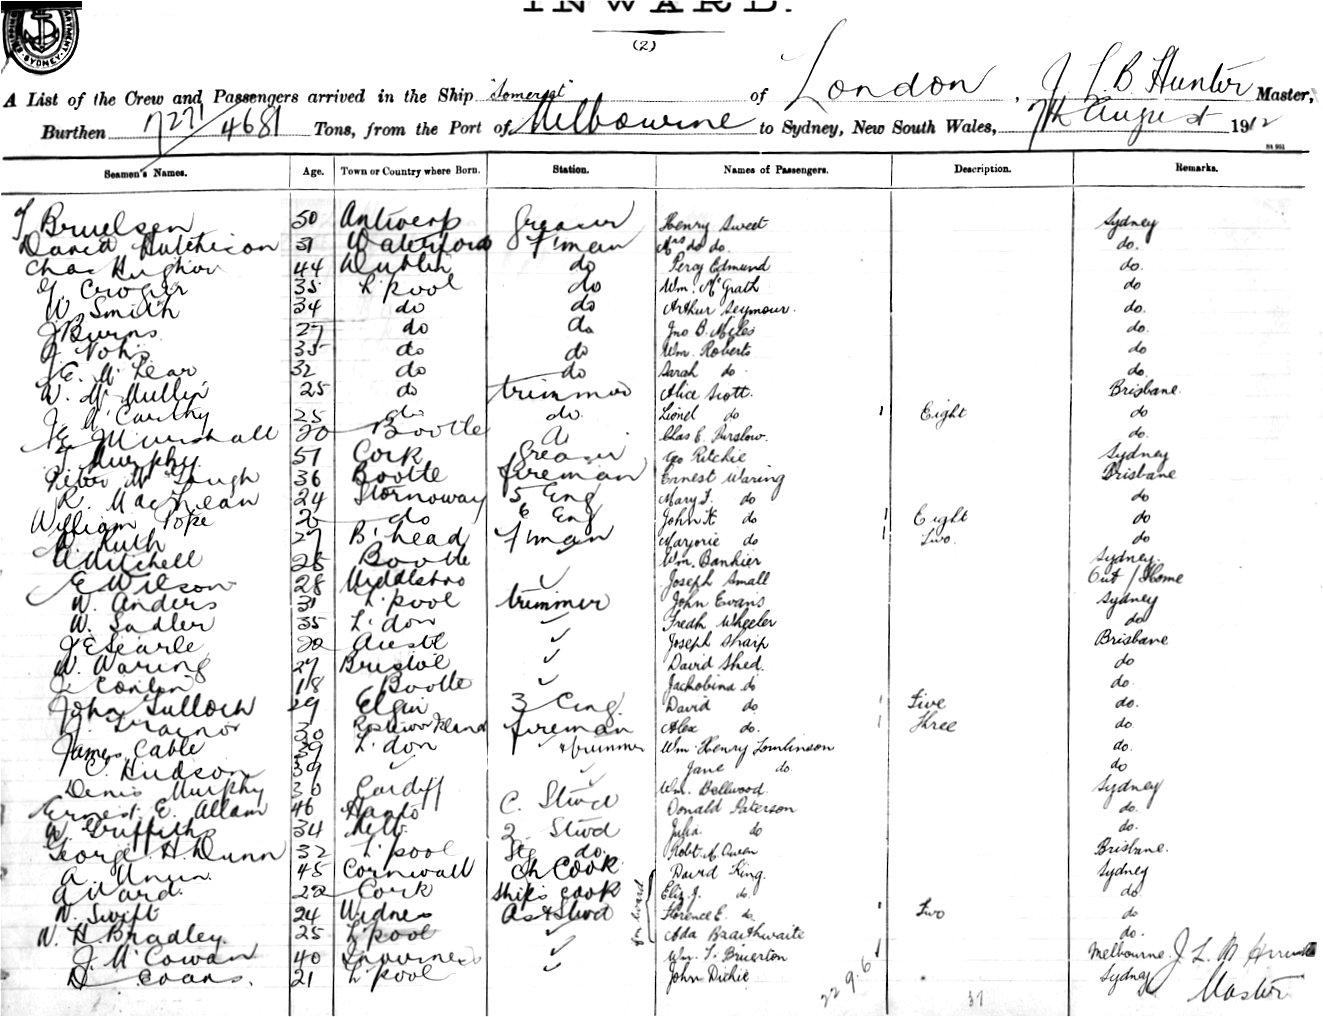 INWARD.
(2)
A List of the Crew and Passengers arrived in the Ship "Somerset" of London, J L B Hunter Master,
Burthen 7271/4681 Tons, from the Port of Melbourne to Sydney, New South Wales, 7th August 1912
Seamen's Names. Age. Town or Country where Born. Station. Names of Passengers. Description. Remarks.
50 Antwerp Greaser Henry Sweet Sydney
David Hutchison 31 Waterford F'man Mrs do do. do.
Chas 44 Dublin do Percy Edmund do.
35 L'pool do Wm. McGrath do
W. Smith 34 do do Arthur Seymour. do.
J Burns 27 do do Jno B. Miles do.
35 do do Wm. Roberts do
32 do do Sarah do. do
W. McMullin 25 do trimmer Alice Scott. Brisbane.
J McCarthy 25 do do. Lionel do 1 Eight do
Marshall 20 Bootle Chas E. Purslow. do.
T. Murphy 51 Cork Greaser Geo Ritchie Sydney
Peter 36 Bootle fireman Ernest Waring Brisbane
24 Stornoway 5 Eng Mary F. do do
William Pope do 6 Eng John H do 1 Eight do
Ruth 27 B'head F'man Marjorie do 1 Two. do
A Mitchell 25 Bootle ✓ Wm. Bankier Sydney.
E Wilson 28 Middlesbro ✓ Joseph Small Out / Home
W. Anders 31 L'pool trimmer John Evans Sydney
W. Sadler 35 L'don ✓ Fredk Wheeler do
J E Searle 22 Aust ✓ Joseph Sharp Brisbane
W. Waring 27 Bristol ✓ David Shed. do
J. Conlin 18 Bootle ✓ Jackobina do do.
John Tulloch 29 Elgin 3 Eng. David do 1 Five do.
Trainor 30 Island fireman Alex do. 1 Three do
James Cable 39 L'don trimmer Wm. Henry Tomlinson do.
C. Hudson 39 ✓ ✓ Jane do. do
Denis Murphy 30 Cardiff ✓ Wm. Bellwood. Sydney
Ernest E. Allam 46 Hants C. Stwd Donald Paterson do.
W. Griffiths 34 2. Stwd Julia do do.
George H. Dunn 32 L'pool do. Robt. A. Owen Brisbane.
A. 45 Cornwall Ch Cook David King. Sydney
A Ward. 22 Cork Ship's cook Eliz. J. do. do
W. Swift 24 Widnes Asst Stwd Florence E. do. 1 Two do
W. H. Bradley. 25 L'pool ✓ Ada Braithwaite do.
J. McCowan 40 Inverness ✓ Wm. T. Bruerton Melbourne. J L B Hunter
D Evans. 21 L'pool ✓ John Dickie Sydney Master
22 9. 6
37